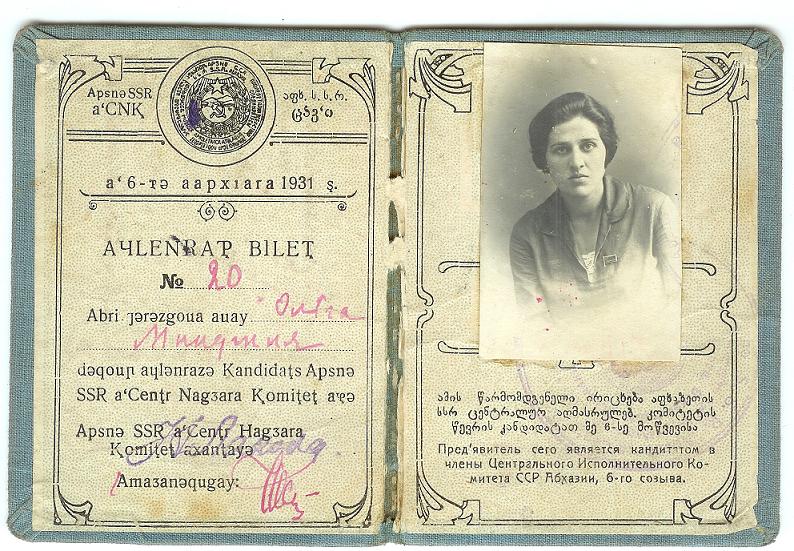 Apsnə SSR
a‘CNҚ
აფხ. ს. ს. რ.
ცაკ‘ი
a‘6-тə aapxıara 1931 ş.
AҸLENRAҬ BILEҬ
№ 20
Abri ȷərəzgoua auay Ольга
Минджия
dəqoup aҹlənrazə Kandidaţs Apsnə
SSR a‘Cenţr Nagзara Қomiţeţ aҽə
Apsnə SSR a‘Cenţr Нagзara
Қomiţeţ axanţayə
Amaзanəqugay:
ამის წარმომდგენელი ირიცხება აფხაზეთის
სსრ ცენტრალურ აღმასრულებ. კომიტეტის
წევრის კანდიდატათ მე 6-სე მოწვევისა
Пред‘явитель сего является кандитатом в
члены Центрального Исполнительного Ко-
митета ССР Абхазии, 6-го созыва.